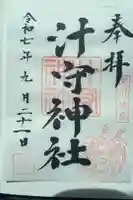 奉拝
汁守神社
令和七年九月二十一日